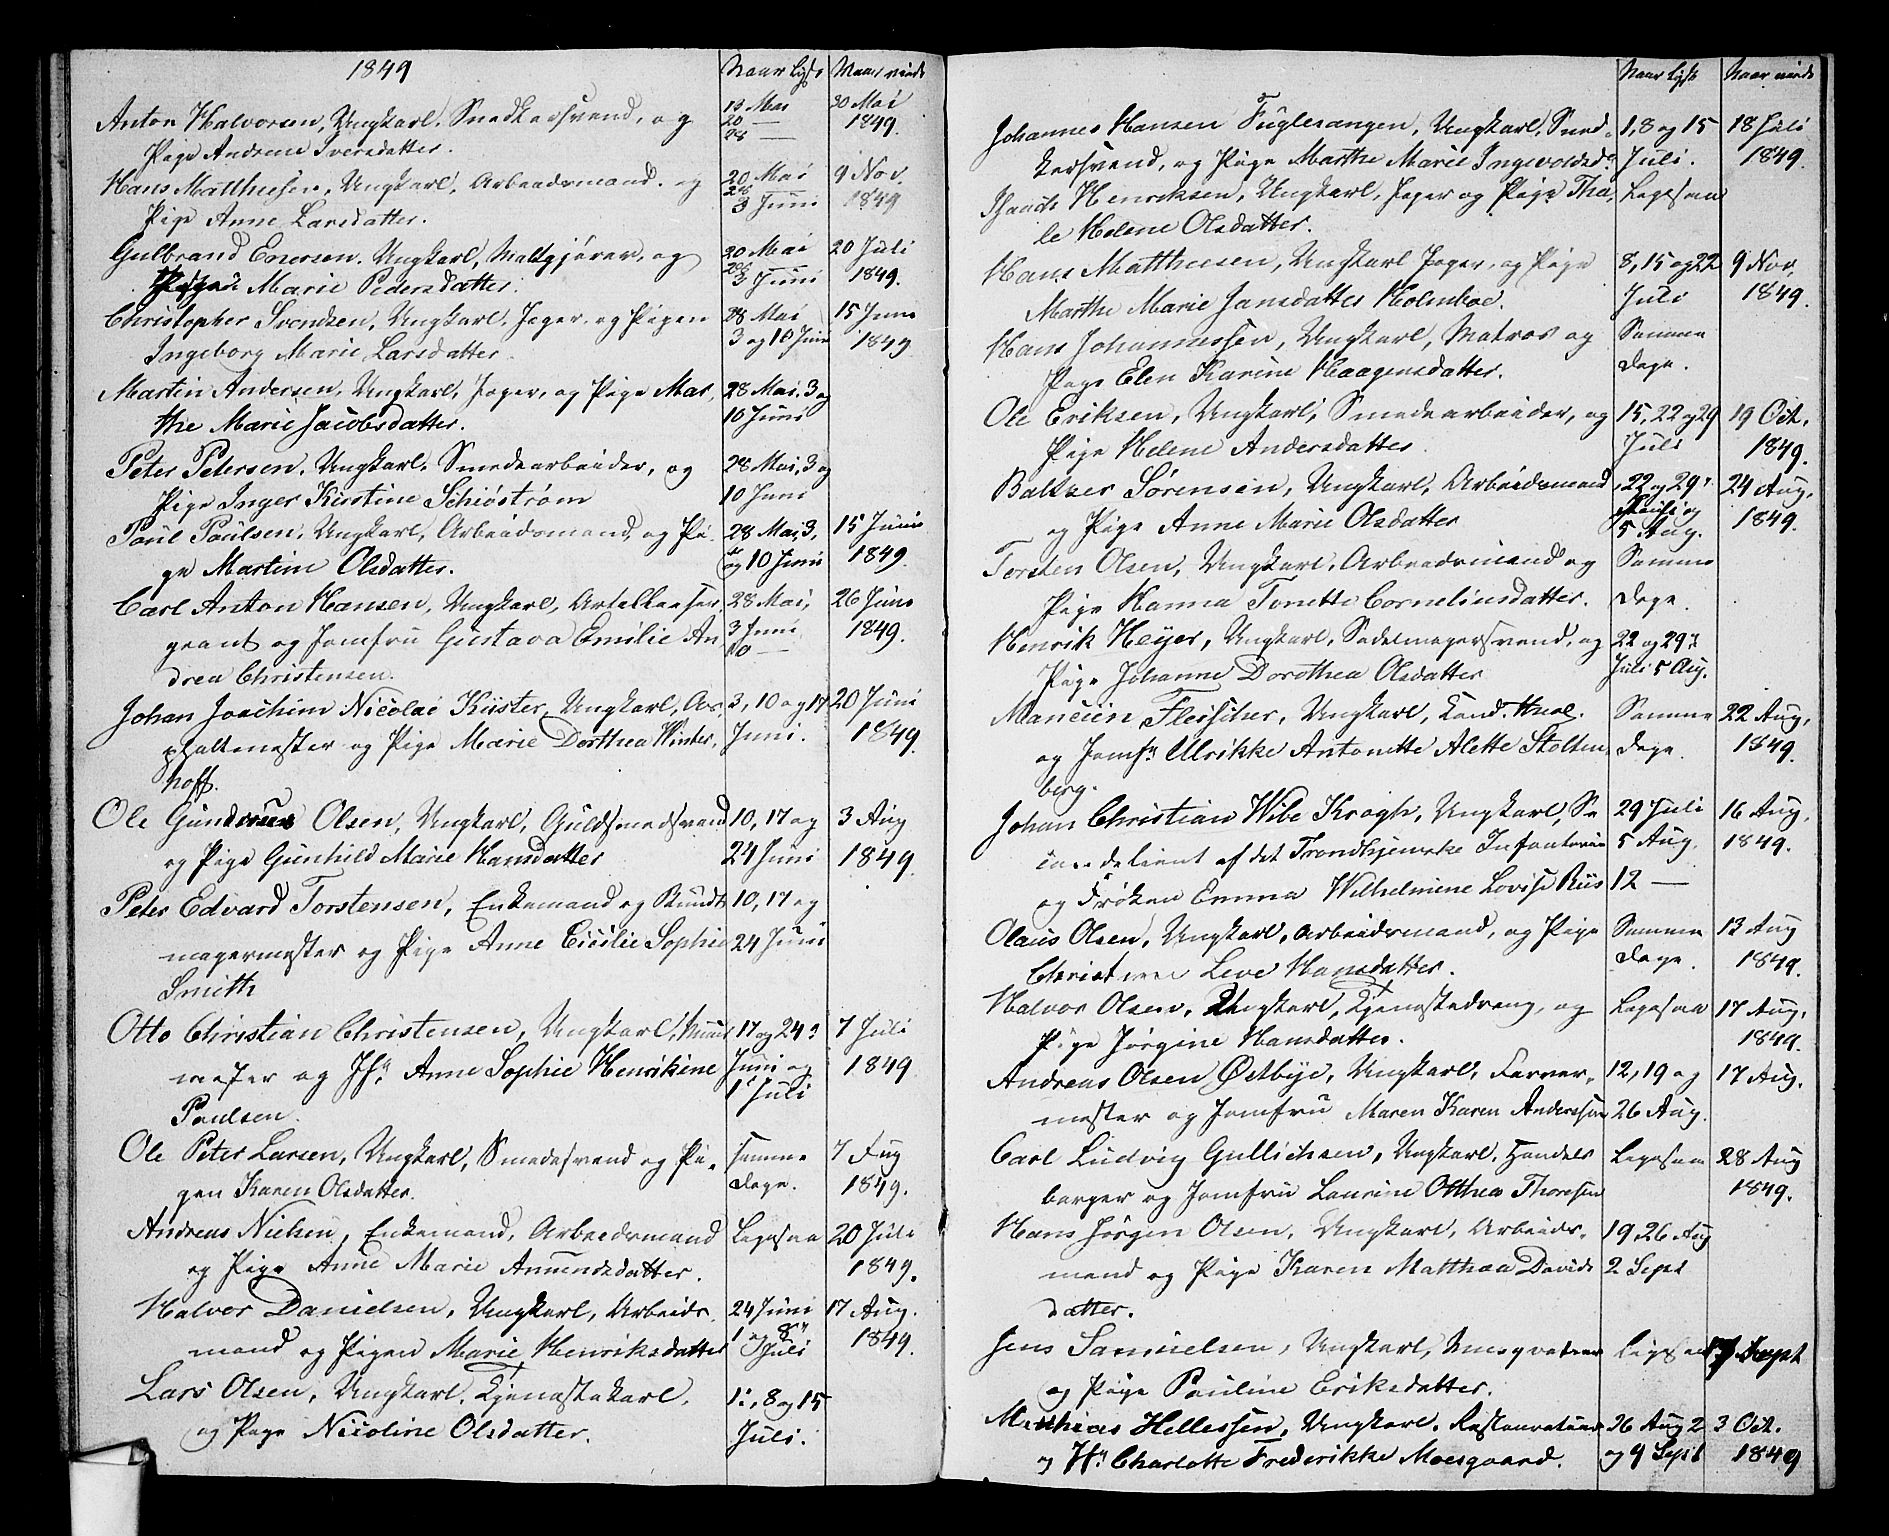 1849 Naar lyst Naar viede
Anton Halvorsen, Ungkarl, Snedkersvend, og 13 Mai 20 Mai
20 — 1849.
Pige Andrene Iversdatter. 28 —
Hans Matthiesen, Ungkarl, Arbeidsmand. og 20 Mai 9 Nov.
28
Pige Anne Larsdatter. 3 Juni 1849
Gulbrand Enersen, Ungkarl, Maltgjører, og 20 Mai 20 Juli
28
Pige Marie Pedersdatter. 3 Juni 1849.
Christopher Svendsen, Ungkarl, Jæger, og Pigen 28 Mai 15 Juni
Ingeborg Marie Larsdatter. 3 og 10 Juni 1849
Martin Andersen, Ungkarl, Jæger, og Pige Mar- 28 Mai, 3 og
the Marie Jacobsdatter. 10 Juni
Peter Petersen, Ungkarl, Smedearbeider, og 28 Mai, 3 og
Pige Inger Kirstine Schiøstrøm 10 Juni
Paul Paulsen, Ungkarl, Arbeidsmand, og Pi- 28 Mai, 3, 15 Juni
ge Martine Olsdatter. og 10 Juni 1849.
Carl Anton Hansen, Ungkarl, 28 Mai, 26 Juni
og Jomfru Gustava Emilie An- 3 Juni 1849.
10 —
drea Christensen.
Johan Joachim Nicolai Küster, Ungkarl, As- 3, 10 og 17 20 Juni
phaltmester og Pige Marie Dorthea Winter- Juni. 1849.
hoff.
Ole Gunderus Olsen, Ungkarl, Guldsmedsvend 10, 17 og 3 Aug
og Pige Gunhild Marie Hansdatter 24 Juni 1849.
Peter Edvard Torstensen, Enkemand og Bundt- 10, 17 og
magermester og Pige Anne Cicilie Sophie 24 Juni
Smith
Otto Christian Christensen, Ungkarl, Muur- 17 og 24 7 Juli
mester og Jfr. Anne Sophie Henrikine Juni og 1849
Paulsen. 1 Juli
Ole Peter Larsen, Ungkarl, Smedesvend og Pi- samme 7 Aug
gen Karen Olsdatter. Dage. 1849.
Andreas Nielsen, Enkemand, Arbeidsmand Ligesaa 20 Juli
og Pige Anne Marie Amundsdatter. 1849.
Halvor Danielsen, Ungkarl, Arbeids- 24 Juni 17 Aug.
mand og Pigen Marie Henriksdatter 1 og 8 Juli 1849.
Lars Olsen, Ungkarl, Tjenestekarl, 1, 8 og 15
og Pige Nicoline Olsdatter. Juli.
Naar lyst Naar viede
Johannes Hansen Fuglesangen, Ungkarl, Sned- 1, 8 og 15 18 Juli
kersvend, og Pige Marthe Marie Ingvoldsdr Juli. 1849.
Henriksen, Ungkarl, Jæger og Pige Tha- Ligesaa
le Helene Olsdatter.
Hans Matthiesen, Ungkarl Jæger, og Pige 8, 15 og 22 9 Nov.
Marthe Marie Jansdatter Holmboe. Juli 1849.
Hans Johannessen, Ungkarl, Matros og Samme
Pige Elen Karine Haagensdatter. Dage.
Ole Eriksen, Ungkarl, Smedearbeider, og 15, 22 og 29 19 Oct.
Pige Helene Andersdatter. Juli 1849.
Baltzer Sørensen, Ungkarl, Arbeidsmand 22 og 29 24 Aug.
Juli og
og Pige Anne Marie Olsdatter 5 Aug. 1849.
Torsten Olsen, Ungkarl, Arbeidsmand og Samme
Pige Hanna Tonette Corneliusdatter. Dage.
Henrik Heyer, Ungkarl, Sadelmagersvend, og 22 og 29
Pige Johanne Dorothea Olsdatter Juli 5 Aug.
Fleischer, Ungkarl, Kand. theol. Samme 22 Aug.
og Jomfr Ulrikke Antonette Alette Stolten- Dage. 1849.
berg.
Johan Christian Wibe Kragh, Ungkarl, Se- 29 Juli 16 Aug.
af det Trondhjemske Infanterie 5 Aug. 1849.
og Frøken Emma Wilhelmine Lovise Riis 12 —
Olaus Olsen, Ungkarl, Arbeidsmand, og Pige Samme 13 Aug
Christine Leve Hansdatter. Dage. 1849.
Halvor Olsen, Ungkarl, Tjenestedreng, og Ligesaa 17 Aug.
Pige Jørgine Hansdatter. 1849.
Andreas Olsen Østbye, Ungkarl, Farver- 12, 19 og 17 Aug.
mester og Jomfru Maren Karen Anderssen 26 Aug.
Carl Ludvig Gullichsen, Ungkarl, Handels- Ligesaa 28 Aug
borger og Jomfru Laurine Otthea Thoresen 1849.
Hans Jørgen Olsen, Ungkarl, Arbeids- 19, 26 Aug
mand og Pige Karen Matthea Davids- 2 Sept
datter.
Jens Samuelsen, Ungkarl, Ligesaa 17 Sept
og Pige Pauline Eriksdatter.
Mathias Hellessen, Ungkarl, Restaurateur 26 Aug 2 3 Oct.
og Charlotte Frederikke Moesgaard. og 9 Sept 1849